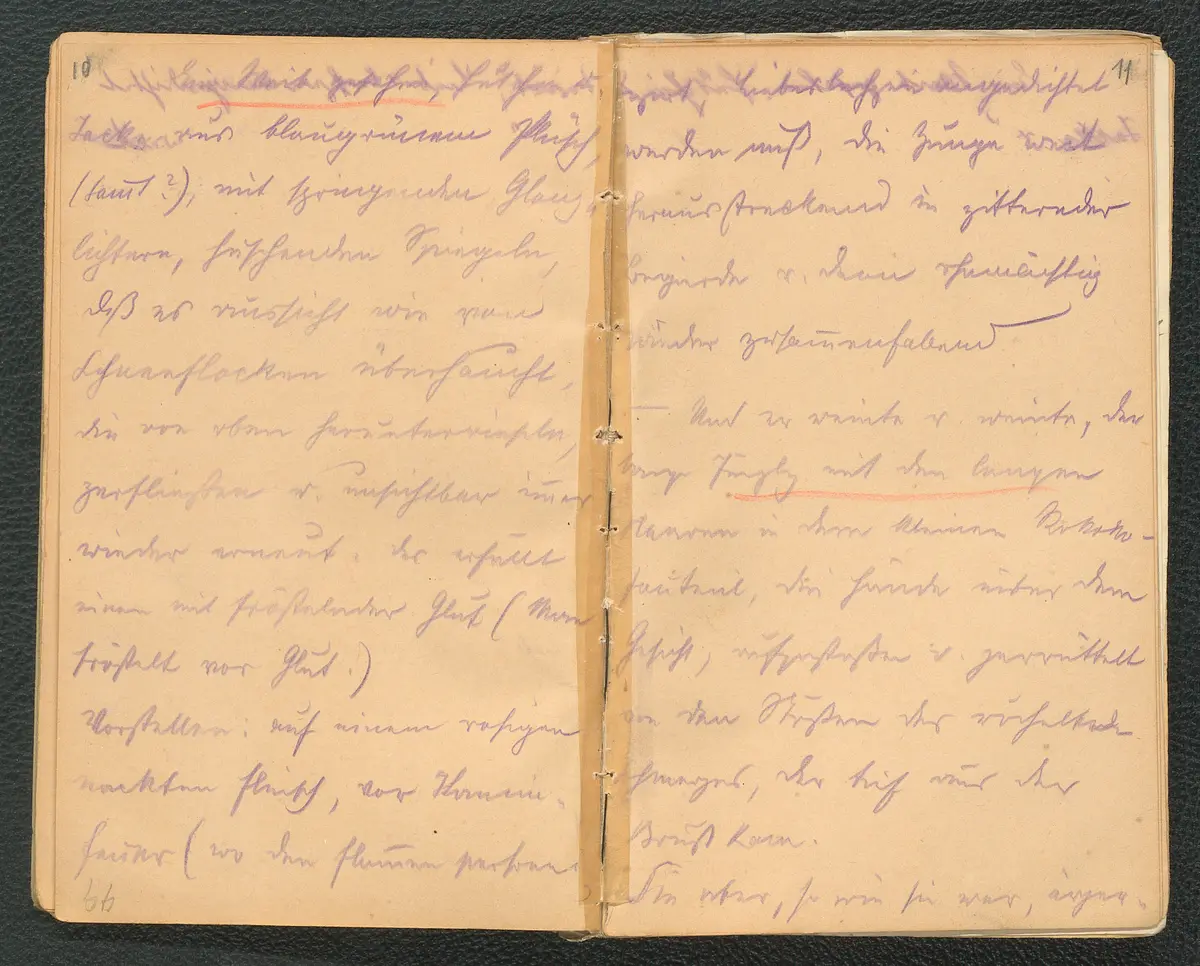 10
Ein Weib gesehen,
Jacke aus blaugrünem Plüsch,
(Samt?), mit springenden Glanz-
lichtern, huschenden Spiegeln,
daß es aussieht wie von
Schneeflocken überhaucht,
die von oben herunterrieseln,
zerfließen u. unsichtbar immer
wieder erneut. das erfüllt
einen mit fröstelnder Glut (Man
fröstelt vor Glut.)
Vorstellen: auf einem rosigen
nackten Fleisch, vor Kamin-
feuer (wo den Flammen
99
11
angedichtet
werden muß, die Zunge weit
herausstreckend in zitternder
Begierde u. dann ohnmächtig
wieder zusammenfallend
— Und er weinte u. weinte, der
lange Jüngling mit den langen
Haaren in dem kleinen Rokoko-
fauteuil, die Hände über dem
Gesicht, aufgestoßen u. zerrüttelt
von den Stößen des röchelnden
Schmerzes, der tief aus der
Brust kam.
Sie aber, so wie sie war, ärger-